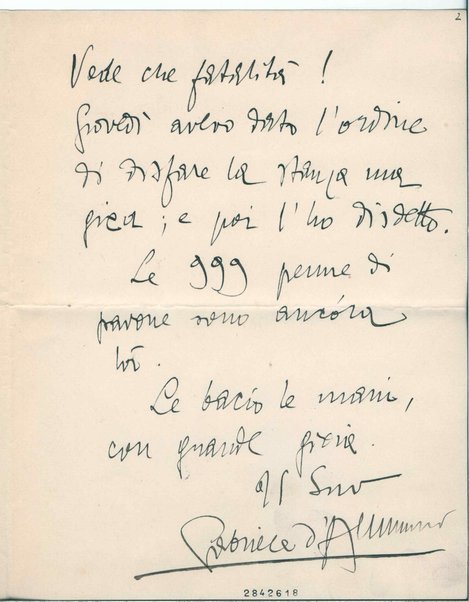 2
Vede che fatalità!
Giovedì avevo dato l'ordine
di disfare la stanza ma
gica; e poi l'ho disdetto.
Le 999 penne di
pavone sono ancóra
lì.
Le bacio le mani,
con grande gioia.
Il Suo
Gabriele d'Annunzio
2842618